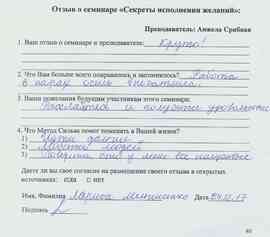 Отзыв о семинаре «Секреты исполнения желаний»:
Преподаватель: Анжела Срибная
1. Ваш отзыв о семинаре и преподавателе: Круто!
2. Что Вам больше всего понравилось и запомнилось? Работа
в парах очень впечатлила.
3. Ваши пожелания будущим участникам этого семинара:
и получите удовольствие
4. Что Метод Сильва помог изменить в Вашей жизни?
1)
2) людей
3) что у меня все получится
Даете ли вы свое согласие на размещение своего отзыва в открытых
источниках: ДА НЕТ
Имя, Фамилия Лариса Дата 17
Подпись